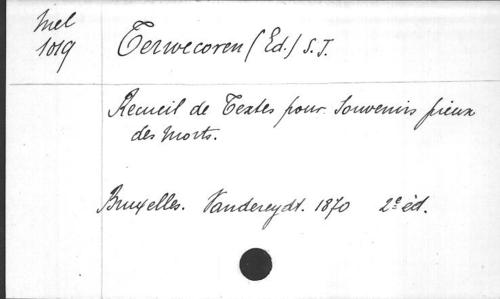 Mel
1019
Terwecoren (Ed.) S.J.
Recueil de Textes pour Souvenirs pieux
des Morts.
Bruxelles. Vandereydt. 1870 2e éd.